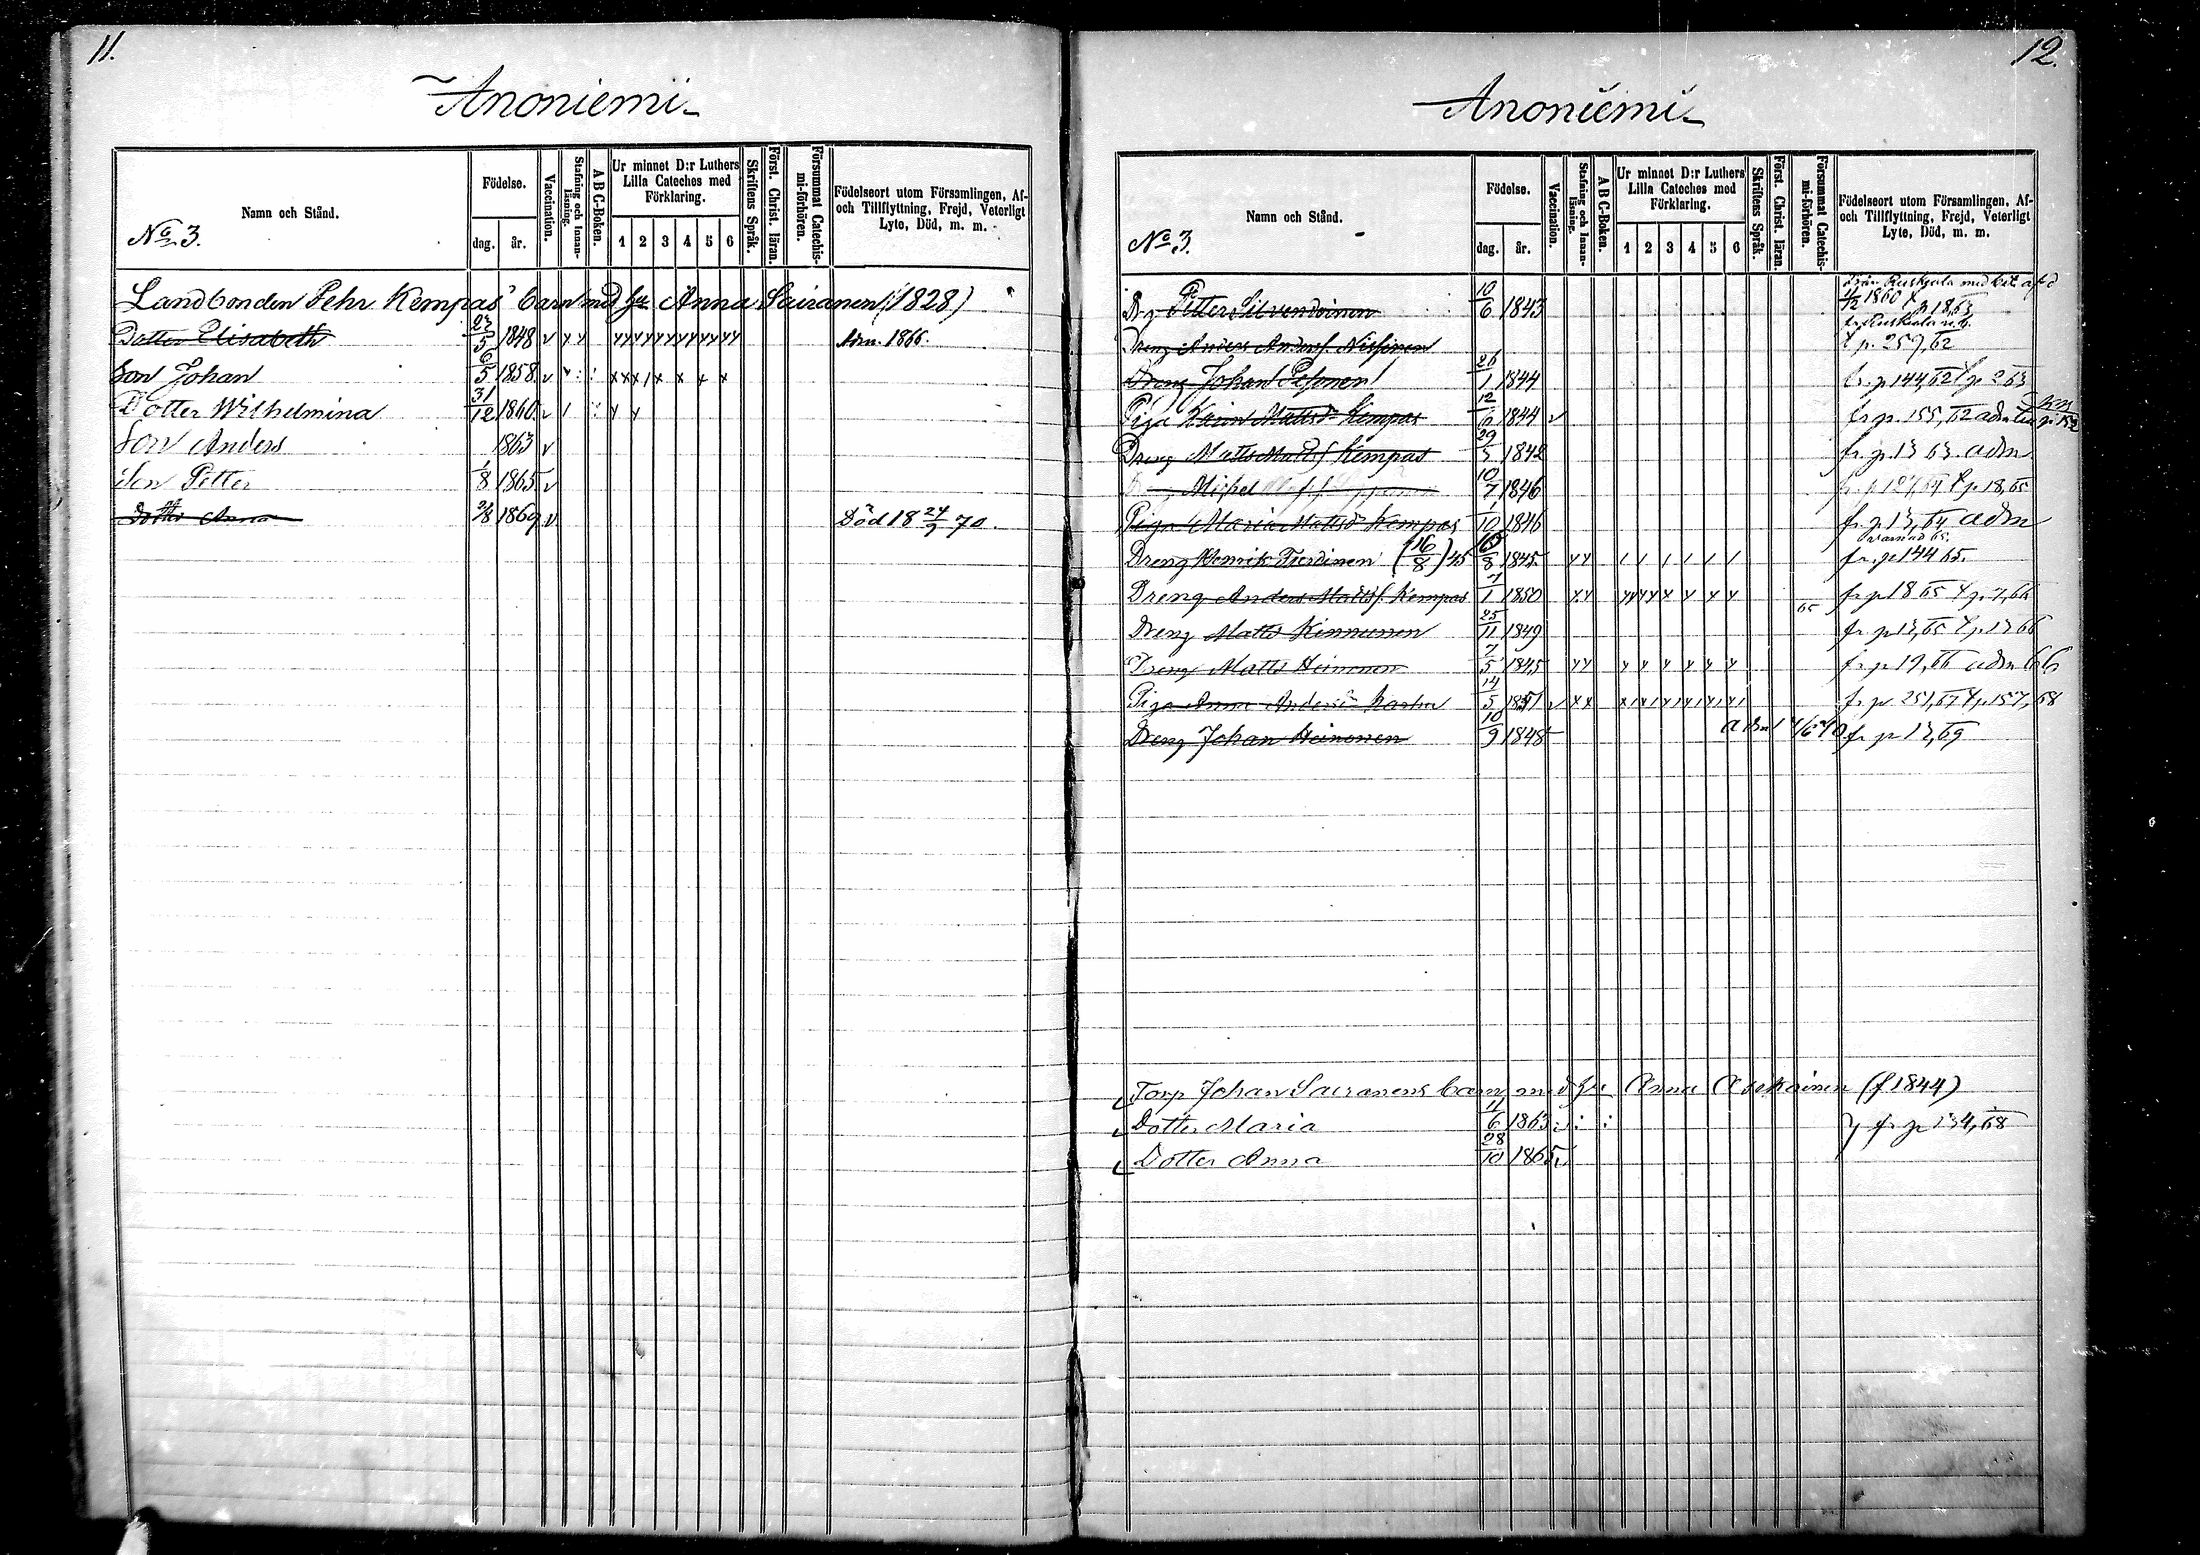 11.
Anoniemi
Namn och Stånd.
No 3.
Födelse.
dag.
år.
Vaccination.
Stafning och Innan-läsning.
A B C-Boken.
Ur minnet D:r Luthers Lilla Cateches med Förklaring.
1 2 3 4 5 6
Skriftens Språk.
Först. Christ. läran.
Försummat Catechis-mi-förhören.
Födelseort utom Församlingen, Af- och Tillflyttning, Frejd, Veterligt Lyte, Död, m. m.
Landbonden Pehr Kempas' barn med Anna Sairanen (1828)
Dotter Elisabeth 23/5 1848 v Adm. 1866.
Son Johan 6/5 1858. v
Dotter Wilhelmina 31/12 1860. v
Son Anders 1863 v
Son Petter 1/8 1865 v
Dotter Anna 2/8 1869 v Död 18 24/9 70.
12.
Anoniemi
Namn och Stånd.
No 3.
Födelse.
dag.
år.
Vaccination.
Stafning och Innan-läsning.
A B C-Boken.
Ur minnet D:r Luthers Lilla Cateches med Förklaring.
1 2 3 4 5 6
Skriftens Språk.
Först. Christ. läran.
Försummat Catechis-mi-förhören.
Födelseort utom Församlingen, Af- och Tillflyttning, Frejd, Veterligt Lyte, Död, m. m.
Petter Silvendoinen 10/6 1843 från Ruskeala med bet. 1860
Dreng Anders Andersf. Nissinen fr. Ruskeala p. 259, 62
Dreng Johan Pesonen 26/1 1844 fr. p 144, 62
Piga Karin Mattsdr Kempas 12/6 1844 v fr p. 155, 62
Dreng Matts Mattsf Kempas 29 1842 fr. p 13 63. adm
Michel 10/7 1846 p 18, 65
Piga Maria Mattsdr Kempas 1/10 1846 fr. p 13, 64 adm
Dreng Henrik Tierdinen (16/8) 45 1845 fr. p 144 65.
Dreng Anders Mattsf. Kempas 7/1 1850 65 fr p 18 65 p. 7, 66
Dreng Matts Kinnunen 25/11 1849 fr p 13, 65 p 13 66
Dreng Matts Heinonen 7/5 1845 fr p 19, 66 adm 66
Piga Anna Andersdr 14/5 1851 v fr p. 251, 67 p. 157, 68
Dreng Johan Heinonen 10/9 1848 fr p 13, 69
Torp Johan Sairanens barn med Anna (f 1844)
Dotter Maria 11/6 1863 fr p 134, 68
Dotter Anna 28/10 1865